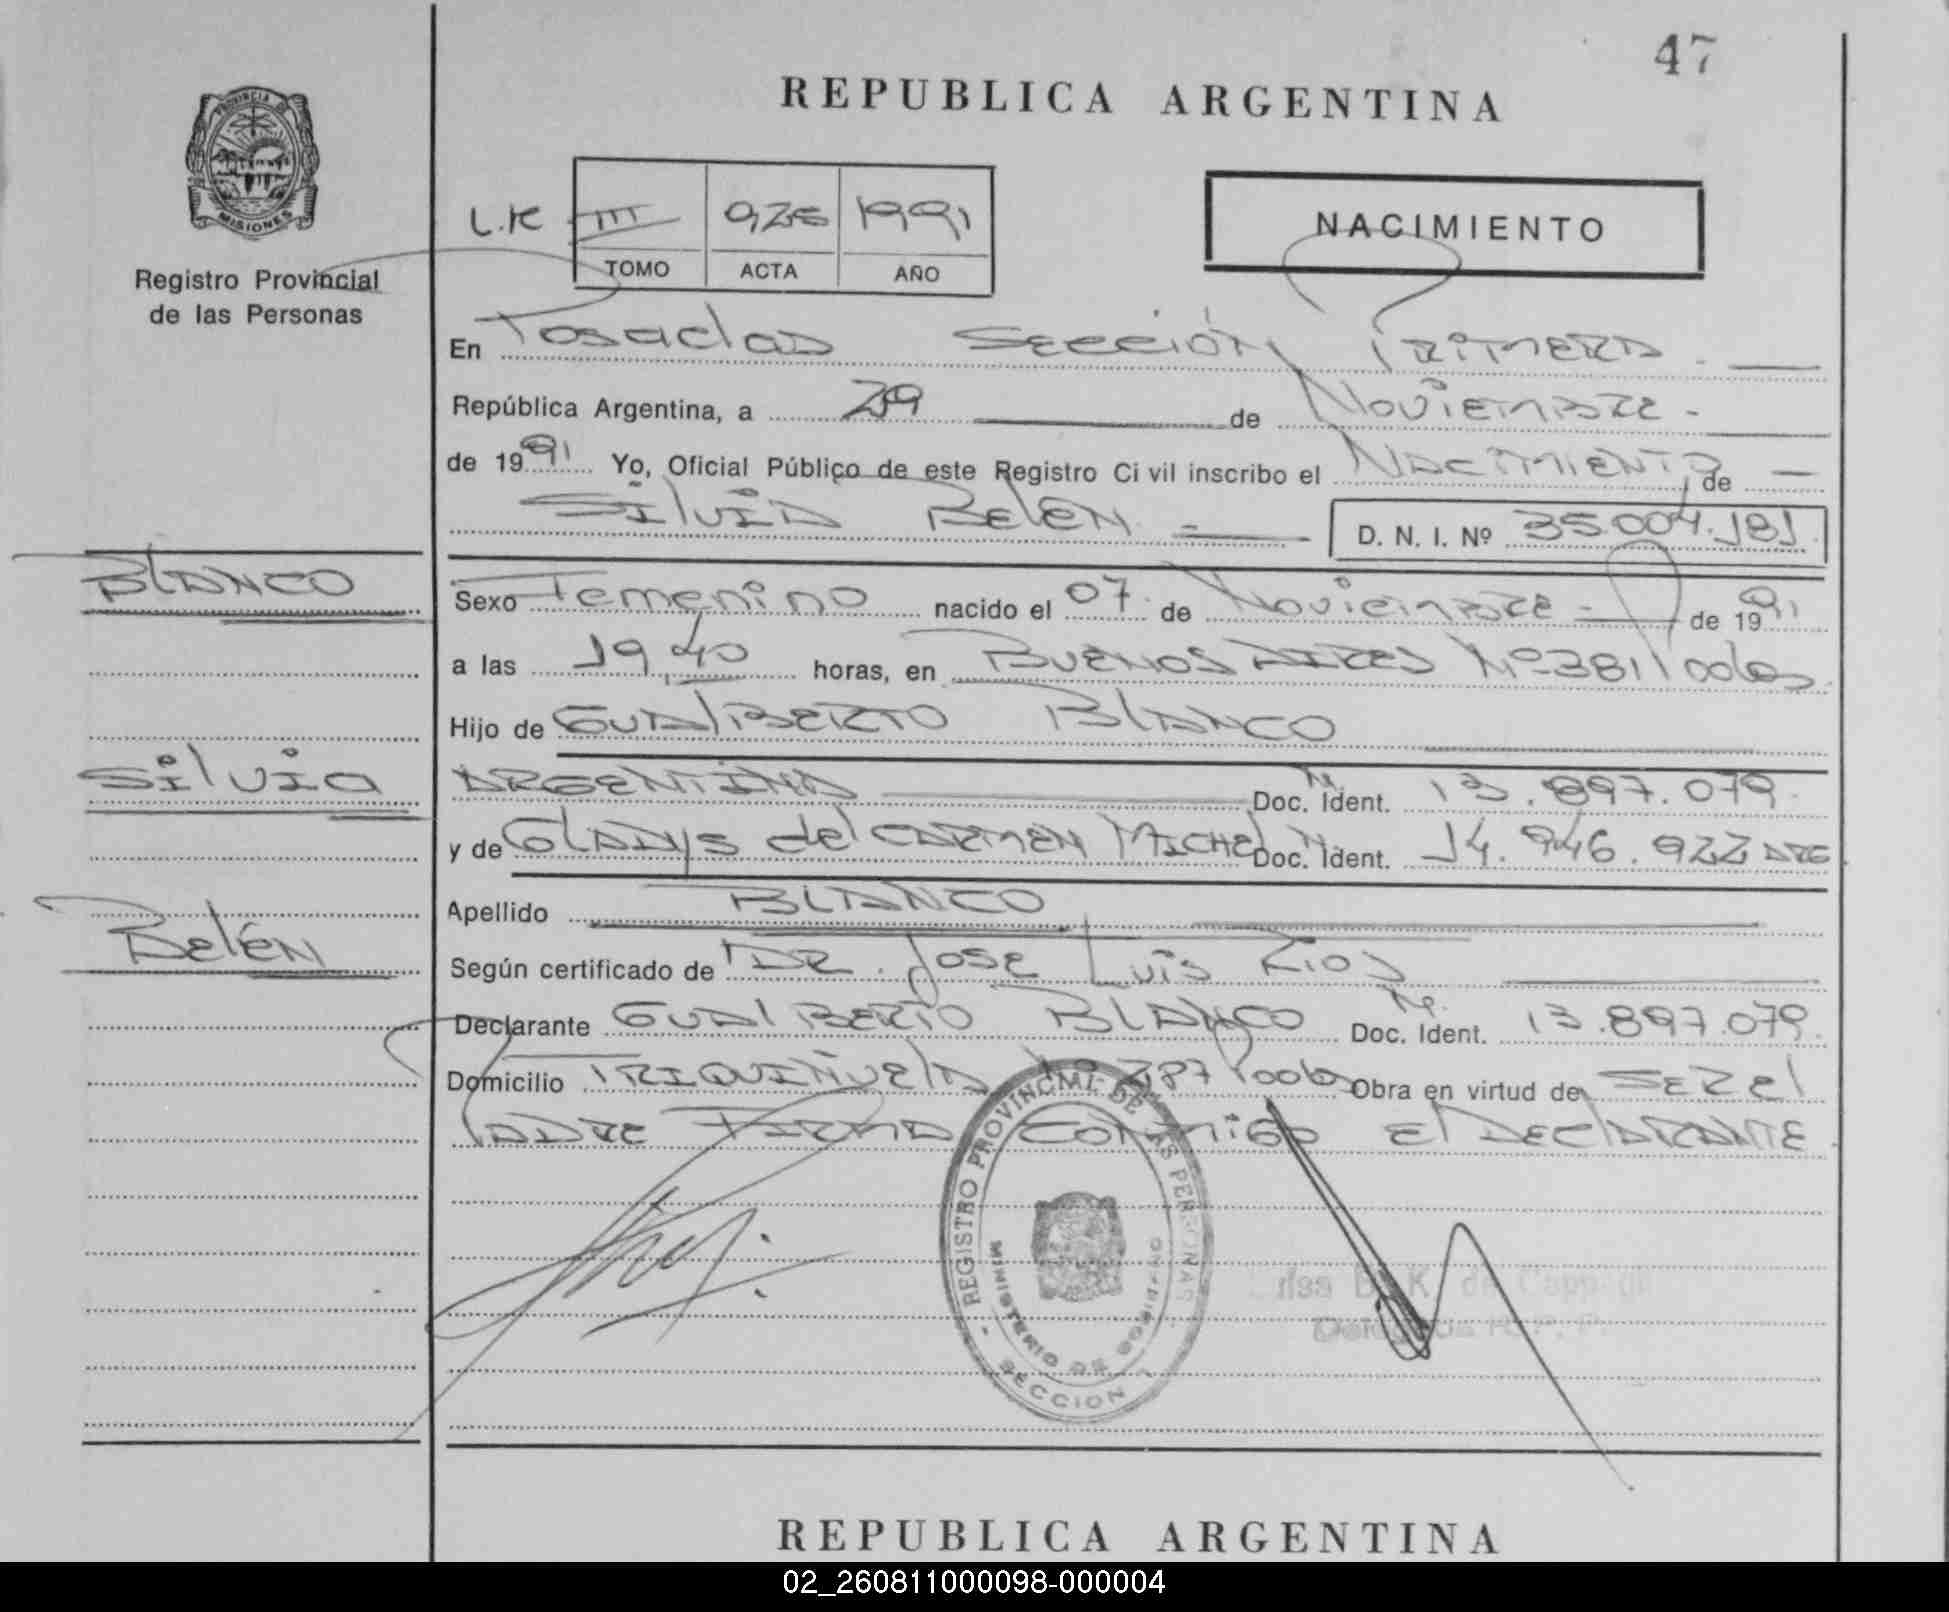 47
REPUBLICA ARGENTINA
PROVINCIA DE
MISIONES
Registro Provincial
de las Personas
L.K III 1991
TOMO ACTA AÑO
NACIMIENTO
En Posadas Sección Primera.
República Argentina, a 29 de Noviembre.
de 1991 Yo, Oficial Público de este Registro Civil inscribo el Nacimiento de
Silvia Belén D. N. I. Nº 35.004.181
Blanco
Sexo Femenino nacido el 07. de Noviembre de 1991
a las 19,40 horas, en Buenos Aires Nº 381
Hijo de Gualberto Blanco
Silvia
Argentina Doc. Ident. 13.897.079
y de Gladys del Carmen Michel Doc. Ident. 14.946.922 ARG
Apellido Blanco
Belén
Según certificado de Dr. Jose Luis Rios
Declarante Gualberto Blanco Doc. Ident. 13.897.079.
Domicilio Triquiñuela 287 Obra en virtud de Ser el
Padre Firma Conmigo El Declarante.
REGISTRO PROVINCIAL DE LAS PERSONAS
MINISTERIO DE GOBIERNO
SECCION 1
REPUBLICA ARGENTINA
02_260811000098-000004